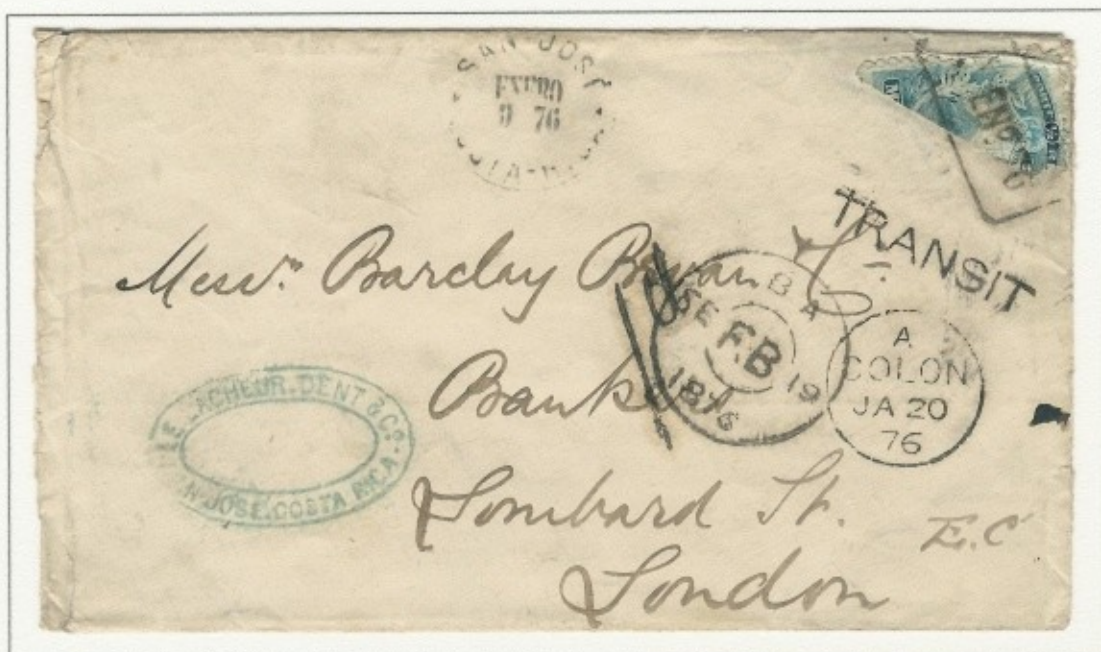 SAN JOSE
ENERO
9 76
COSTA-RICA
TRANSIT
Messrs. Barclay Bevan & Co.
Bankers
Lombard St.
E.C
London
LE LACHEUR. DENT & Co.
SAN JOSE. COSTA RICA.
F.B
19
1876
A
COLON
JA 20
76